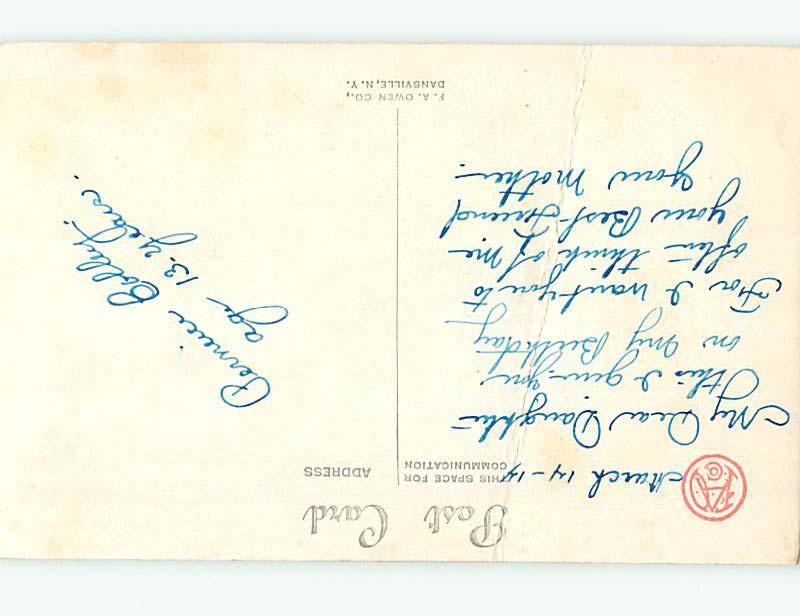 Post Card
THIS SPACE FOR
COMMUNICATION
ADDRESS
March 14-14
My Dear Daughter
this I give you
on My Birthday
For I want you to
often think of Me
your Best Friend
your Mother.
age 13- years.
F. A. OWEN CO.,
DANSVILLE, N. Y.